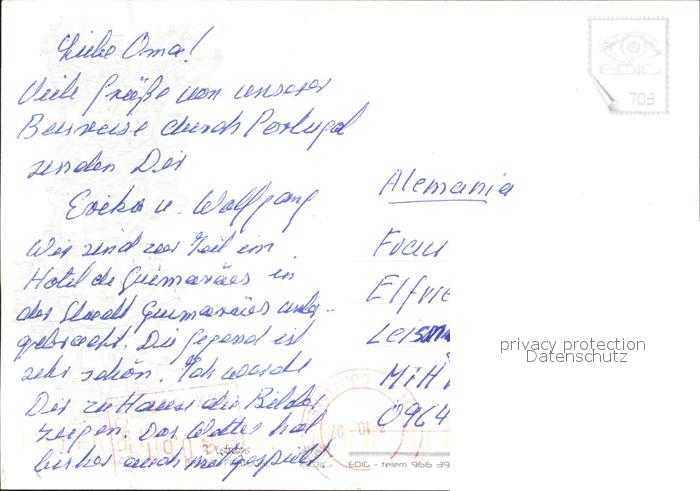 Liebe Oma!
Viele Grüße von unserer
Busreise durch Portugal
senden Dir
Erika u. Wolfgang
Wir sind zur Zeit im
Hotel de Guimarães in
der Stadt Guimarães unter-
gebracht. Die Gegend ist
sehr schön. Ich werde
Dir zu Hause die Bilder
zeigen. Das Wetter hat
bisher auch mitgespielt
EDIG
703
Alemania
Frau
Elfrie
Leism
privacy protection
Datenschutz
0964
EDIG - telem 966 39